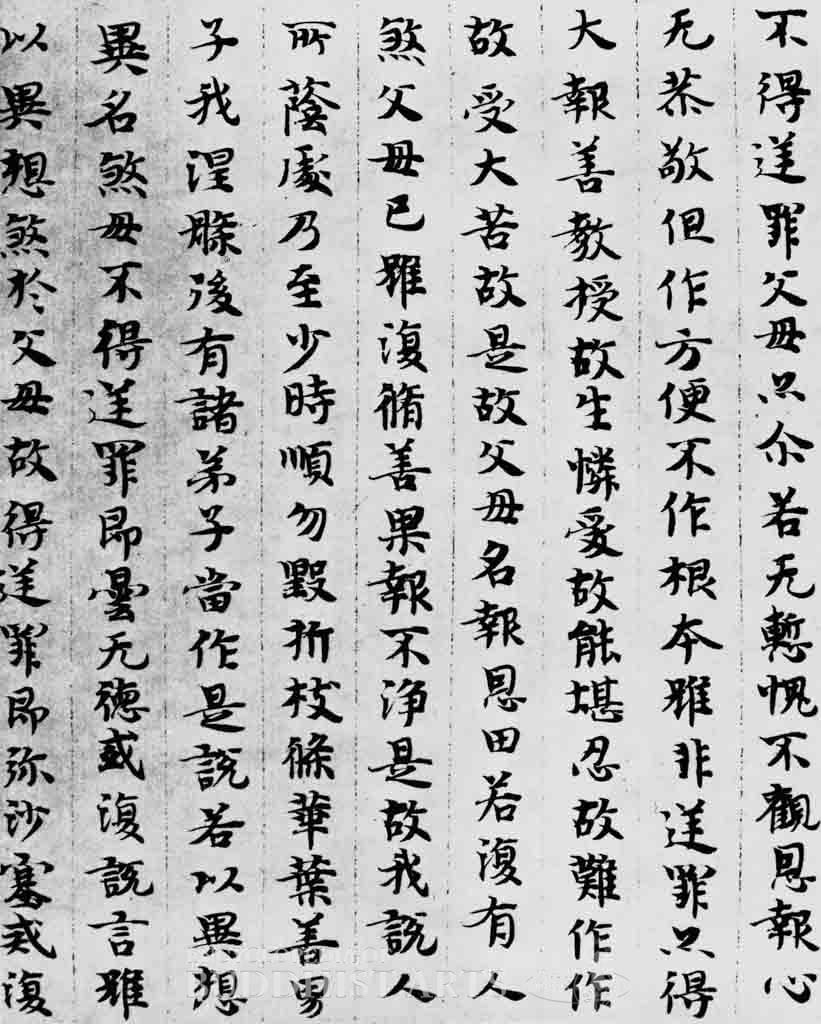 不得逆罪父母亦尒若无慙愧不觀恩報心
无恭敬但作方便不作根本雖非逆罪亦得
大報善教授故生憐愛故能堪忍故難作作
故受大苦故是故父母名報恩田若復有人
煞父母已雖復脩善果報不淨是故我說人
所蔭處乃至少時順勿毀折枝條華葉善男
子我涅槃後有諸弟子當作是說若以異想
異名煞母不得逆罪即曇无德或復說言雖
以異想煞於父母故得逆罪即弥沙塞或復
BUDDHIST ART